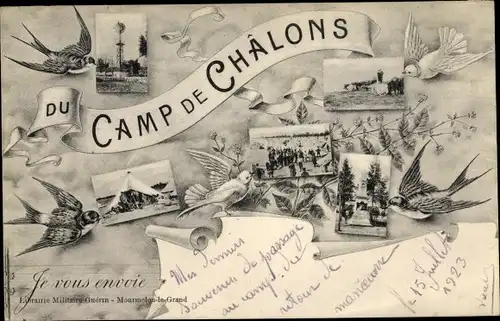 DU CAMP DE CHÂLONS
Je vous envoie
Librairie Militaire Guérin - Mourmelon-le-Grand
Mes
Souvenirs de passage
au camp du
retour de
manœuvre
le 15 Juillet
1923